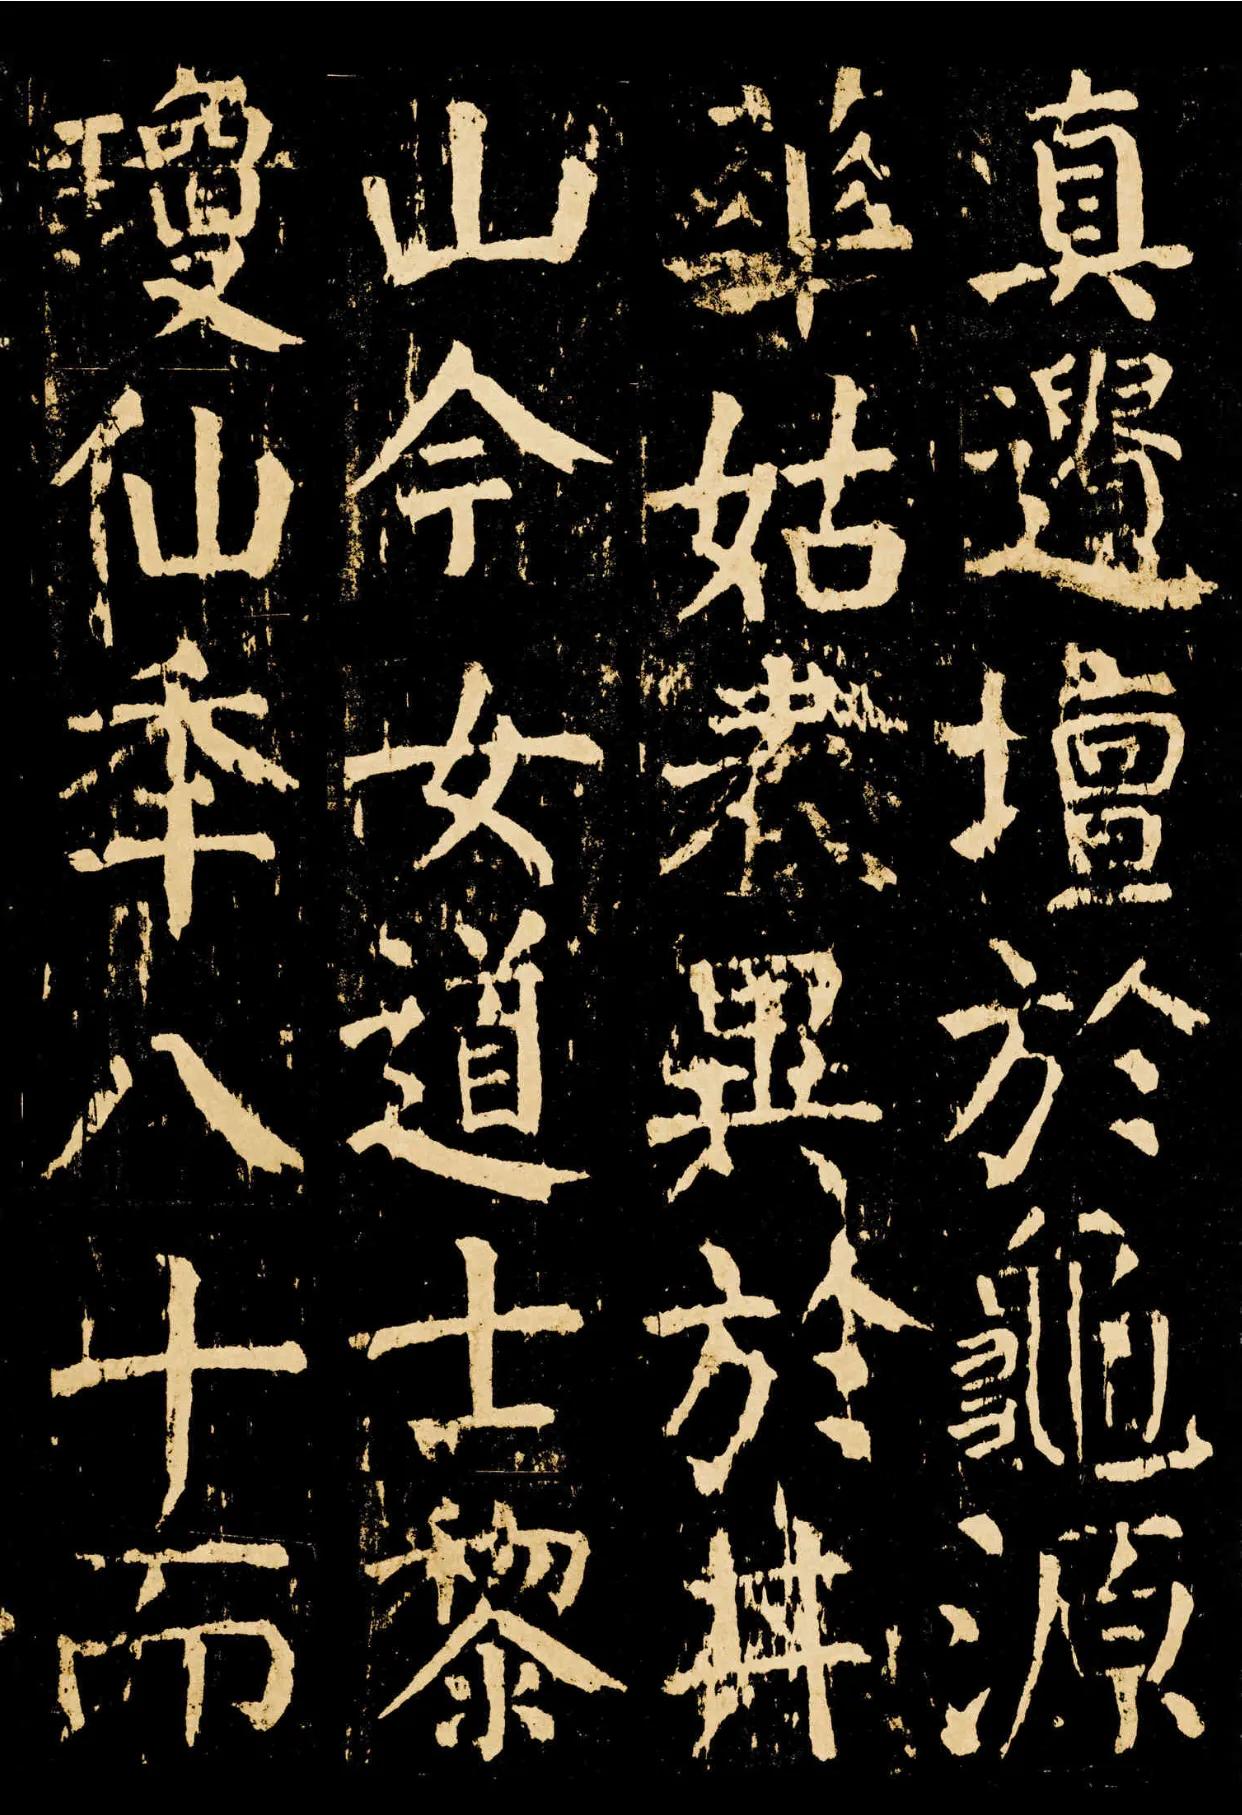 真遺壇於龜源
華姑表異於井
山今女道士黎
瓊仙秊八十而